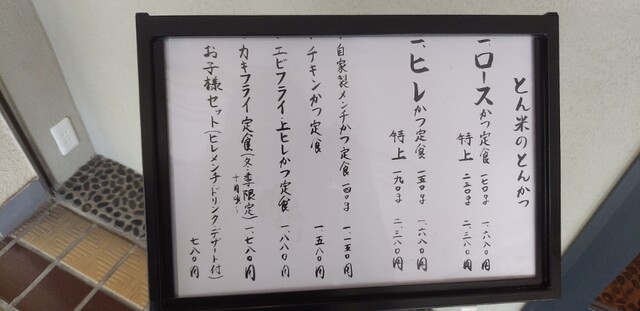 とん米のとんかつ
一、ロースかつ定食 一七〇g 一、六八〇円
特上 二五〇g 二、三八〇円
一、ヒレかつ定食 一五〇g 一、六八〇円
特上 一九〇g 二、三八〇円
・自家製メンチかつ定食 一四〇g 一、一五〇円
・チキンかつ定食 一、五八〇円
・エビフライ・上ヒレかつ定食 一、八八〇円
・カキフライ定食(冬季限定) 一、七八〇円
十月頃〜
お子様セット(ヒレ・メンチ・ドリンク・デザート付) 七八〇円